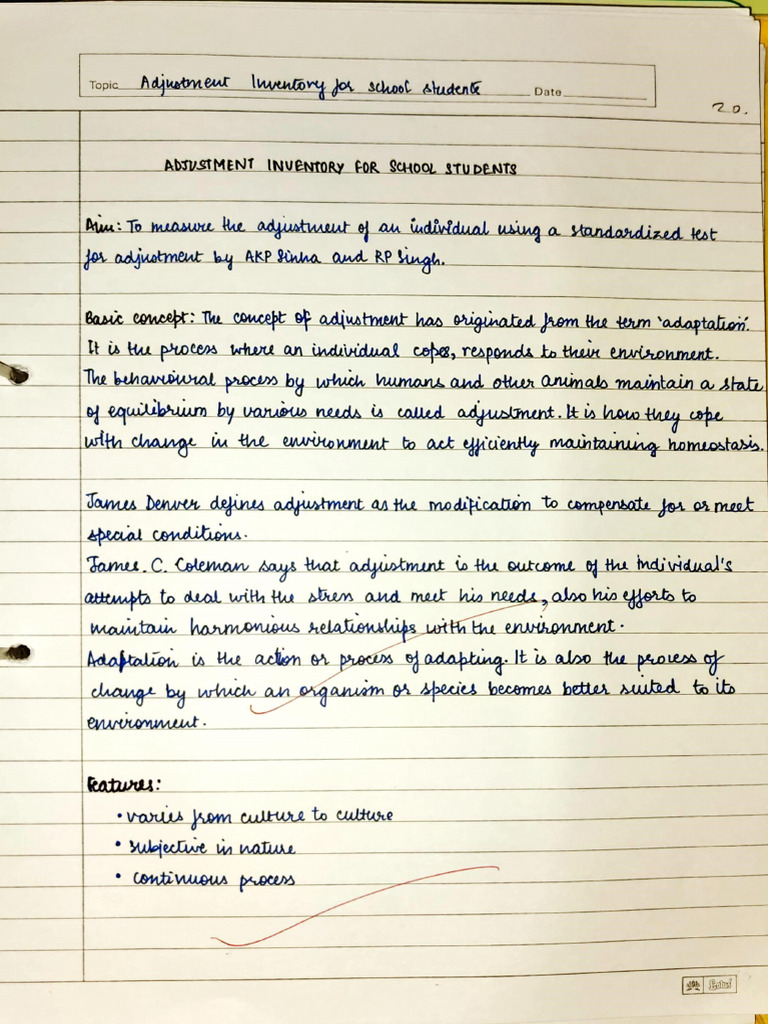 Topic Adjustment Inventory for school students Date
20.
ADJUSTMENT INVENTORY FOR SCHOOL STUDENTS
Aim: To measure the adjustment of an individual using a standardized test
for adjustment by AKP Sinha and RP Singh.
Basic concept: The concept of adjustment has originated from the term 'adaptation'.
It is the process where an individual copes, responds to their environment.
The behavioural process by which humans and other animals maintain a state
of equilibrium by various needs is called adjustment. It is how they cope
with change in the environment to act efficiently maintaining homeostasis.
James Denver defines adjustment as the modification to compensate for or meet
special conditions.
James. C. Coleman says that adjustment is the outcome of the individual's
attempts to deal with the stress and meet his needs, also his efforts to
maintain harmonious relationships with the environment.
Adaptation is the action or process of adapting. It is also the process of
change by which an organism or species becomes better suited to its
environment.
Features:
• varies from culture to culture
• subjective in nature
• continuous process